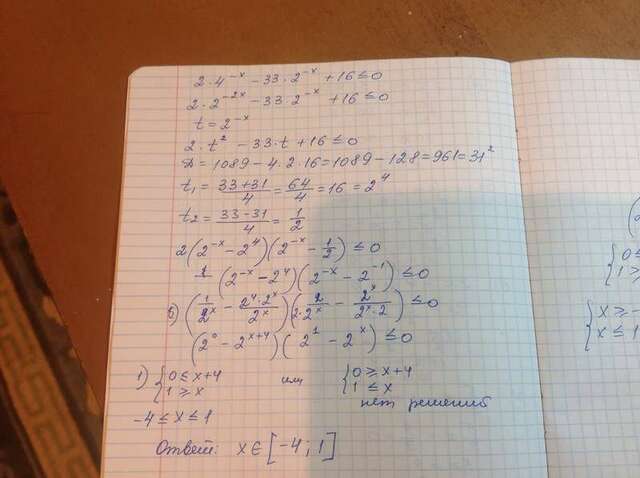 2·4^{-x} - 33·2^{-x} + 16 ≤ 0
2·2^{-2x} - 33·2^{-x} + 16 ≤ 0
t = 2^{-x}
2·t² - 33·t + 16 ≤ 0
D = 1089 - 4·2·16 = 1089 - 128 = 961 = 31²
t₁ = \frac{33+31}{4} = \frac{64}{4} = 16 = 2⁴
t₂ = \frac{33-31}{4} = \frac{1}{2}
2(2^{-x} - 2⁴)(2^{-x} - \frac{1}{2}) ≤ 0
(2^{-x} - 2⁴)(2^{-x} - 2^{-1}) ≤ 0
(\frac{1}{2^x} - \frac{2⁴·2^x}{2^x})(\frac{2}{2·2^x} - \frac{2^x}{2^x·2}) ≤ 0
(2⁰ - 2^{x+4})(2¹ - 2^x) ≤ 0
1) { 0 ≤ x+4 или { 0 ≥ x+4
1 ≥ x 1 ≤ x
-4 ≤ x ≤ 1 нет решений
Ответ: x ∈ [-4; 1]
{ 0 ≤
1 ≥
{ x ≥ -
x ≤ 1